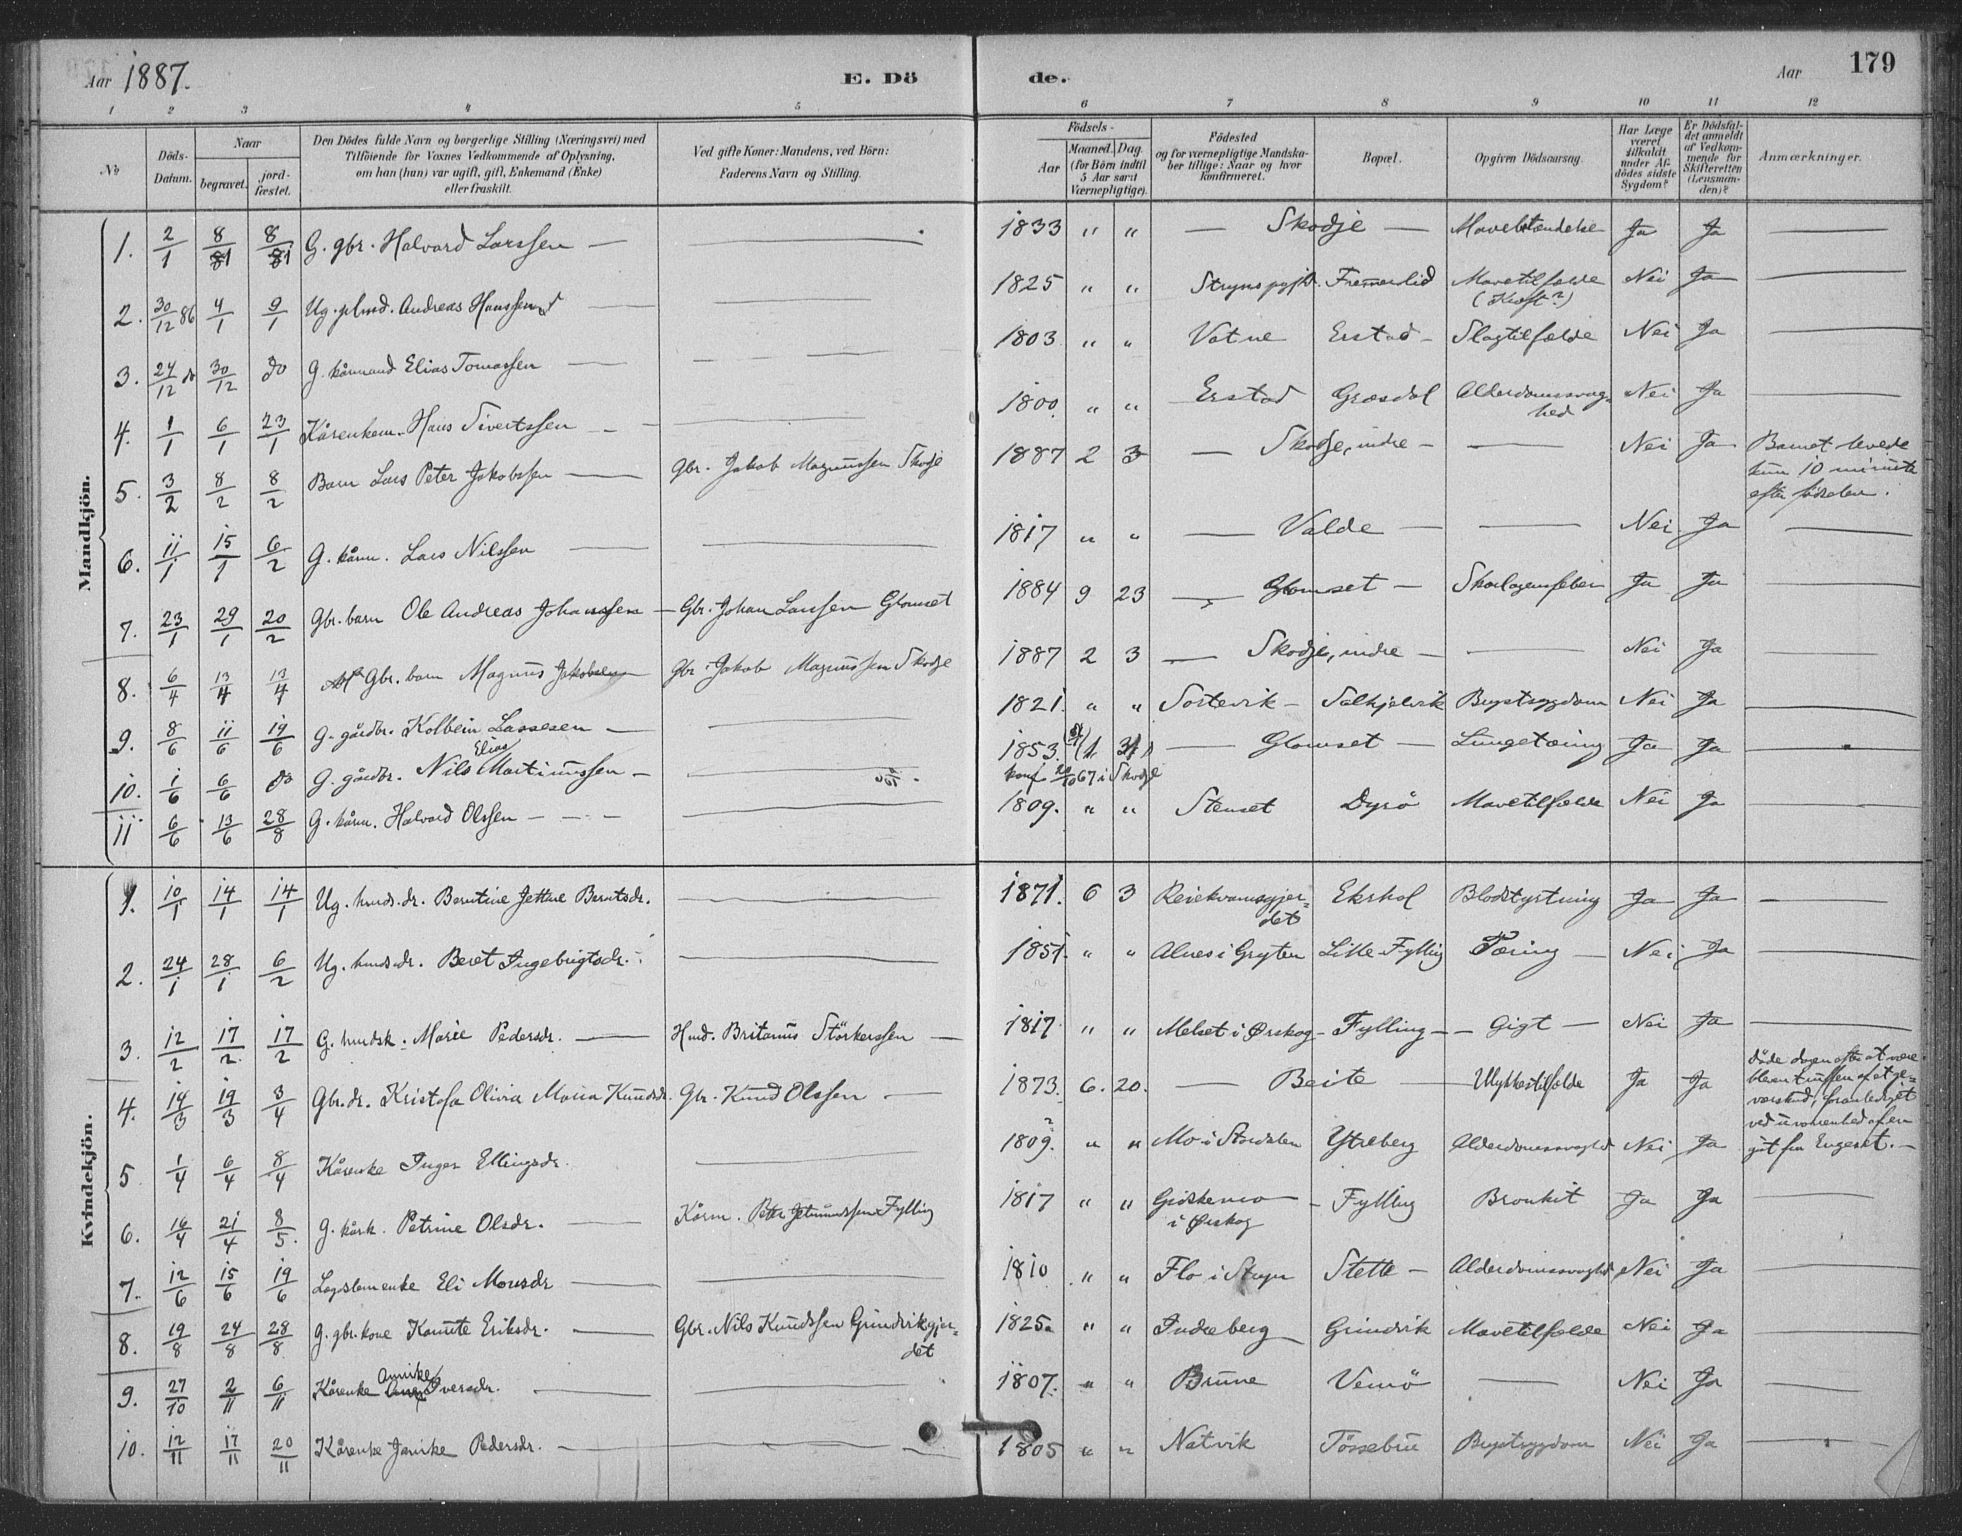 Aar 1887. E. Dö de. Aar 179
1 2 3 4 5 6 7 8 9 10 11 12
No
Döds-Datum.
Naar
begravet.
jord-fæstet.
Den Dödes fulde Navn og borgerlige Stilling (Næringsvei) med
Tilföiende for Voxnes Vedkommende af Oplysning,
om han (hun) var ugift, gift, Enkemand (Enke)
eller fraskilt.
Ved gifte Koner: Mandens, ved Börn:
Faderens Navn og Stilling.
Födsels-
Aar
Maaned. Dag.
(for Börn indtil
5 Aar samt
Værnepligtige).
Födested
og for værnepligtige Mandska-
ber tillige: Naar og hvor
konfirmeret.
Bopæl.
Opgiven Dödsaarsag.
Har Læge
været
tilkaldt
under Af-
dödes sidste
Sygdom?
Er Dödsfal-
det anmeldt
af Vedkom-
mende for
Skifteretten
(Lensman-
den)?
Anmærkninger.
Mandkjön.
1. 2/1 8/1 8/1 G. gbr. Halvard Larssen — — 1833 " " — Skodje — Mavebetændelse Ja Ja —
2. 30/12 86 4/1 9/1 Ug. Andreas Hanssen — 1825 " " Fremerlid Mavetilfælde Nei Ja —
(Kræft?)
3. 24/12 do 30/12 do G. kårmand Elias Tomassen — — 1803 " " Vatne Erstad Slagtilfælde Nei Ja —
4. 1/1 6/1 23/1 Kårenkem. Hans Sivertssen — — 1800 " " Erstad Græsdal Alderdomssvag-
hed Nei Ja —
5. 3/2 8/2 8/2 Barn Lars Peter Jakobssen — Gbr. Jakob Magnussen Skodje 1887 2 3 — Skodje, indre — — Nei Ja Barnet levede
kun 10 minute
efter födselen.
6. 11/1 15/1 6/2 G. kårm. Lars Nilssen — — 1817 " " — Valde — — Nei Ja —
7. 23/1 29/1 20/2 Gbr. barn Ole Andreas Johanssen — Gbr. Johan Larssen Glomset 1884 9 23 — Glomset — Skarlagensfeber Ja Ja —
8. 6/4 13/4 13/4 Gbr. barn Magnus Jakobsen Gbr. Jakob Magnussen Skodje 1887 2 3 — Skodje, indre — — Nei Ja —
9. 8/6 11/6 19/6 G. gårdbr. Kolbein Lassesen — — 1821 " " Sortevik — Solhjelvik Brystsygdom Nei Ja —
10. 1/6 6/6 do G. gårdbr. Nils Elias Martinussen — — 1853 — Glomset — Lungetæring Ja Ja
konf. 67 i Skodje
11 6/6 13/6 28/8 G. kårm. Halvard Olssen — — 1809. " " Stenset Dyrö Mavetilfælde Nei Ja —
Kvindekjön.
1. 10/1 14/1 14/1 Ug. husds. dr. Berntine Jettine Berntsdr. — 1871 6 3 Reiekvamsgjer-
det Ekshol Blodstyrtning Ja Ja —
2. 24/1 28/1 6/2 Ug. husds. dr. Beret Ingebrigtsdr. — 1851. " " Alnes i Gryten Lille-Fylling Tæring — Nei Ja —
3. 12/2 17/2. 17/2 G. husdsk. Marie Pedersdr. — Husd. Britanus Störkerssen — 1817 " " Melset i Ørskog — Fylling — Gigt — Nei Ja —
4. 14/3 19/3 3/4 Gbr. dr. Kristofa Olivia Maria Knudsdr. Gbr. Knud Olssen — 1873. 6. 20. — Beite — Ulykkestilfælde Ja Ja döde dagen efter at være
bleven truffen af et ge-
værskud, foranlediget
ved uvorenhed af en
gut fra Engeset. —
5 1/4 6/4 8/4 Kårenke Inger Ellingsdr. — 1809? " " Mo i Stordalen Ytreberg Alderdomssvaghd Nei Ja
6. 16/4 21/4 8/5. G. kårk. Petrine Olsdr. — Kårm. Petter Jetmundssen Fylling 1817 " " Giskemo
i Ørskog — Fylling Bronkit Ja Ja —
7. 12/6 15/6 19/6 Lægdslemenke Eli Monsdr — — 1810 " " Flo i Stryn Stette — Alderdomssvaghd Nei Ja —
8. 19/8 24/8 28/8 G. gbr. kone Kanute Eriksdr. — Gbr. Nils Knudssen Grindvikgjer-
det 1825 " " Indreberg Grindvik Mavetilfælde Nei Ja —
9. 27/10 2/11 6/11 Kårenke Annike Iversdr. — — 1807. " " Brune Vemö — Nei Ja —
10. 12/11 17/11 20/11 Kårenke Janike Pedersdr. — — 1805 " " Nätvik Tössebru Brystsygdom Nei Ja —